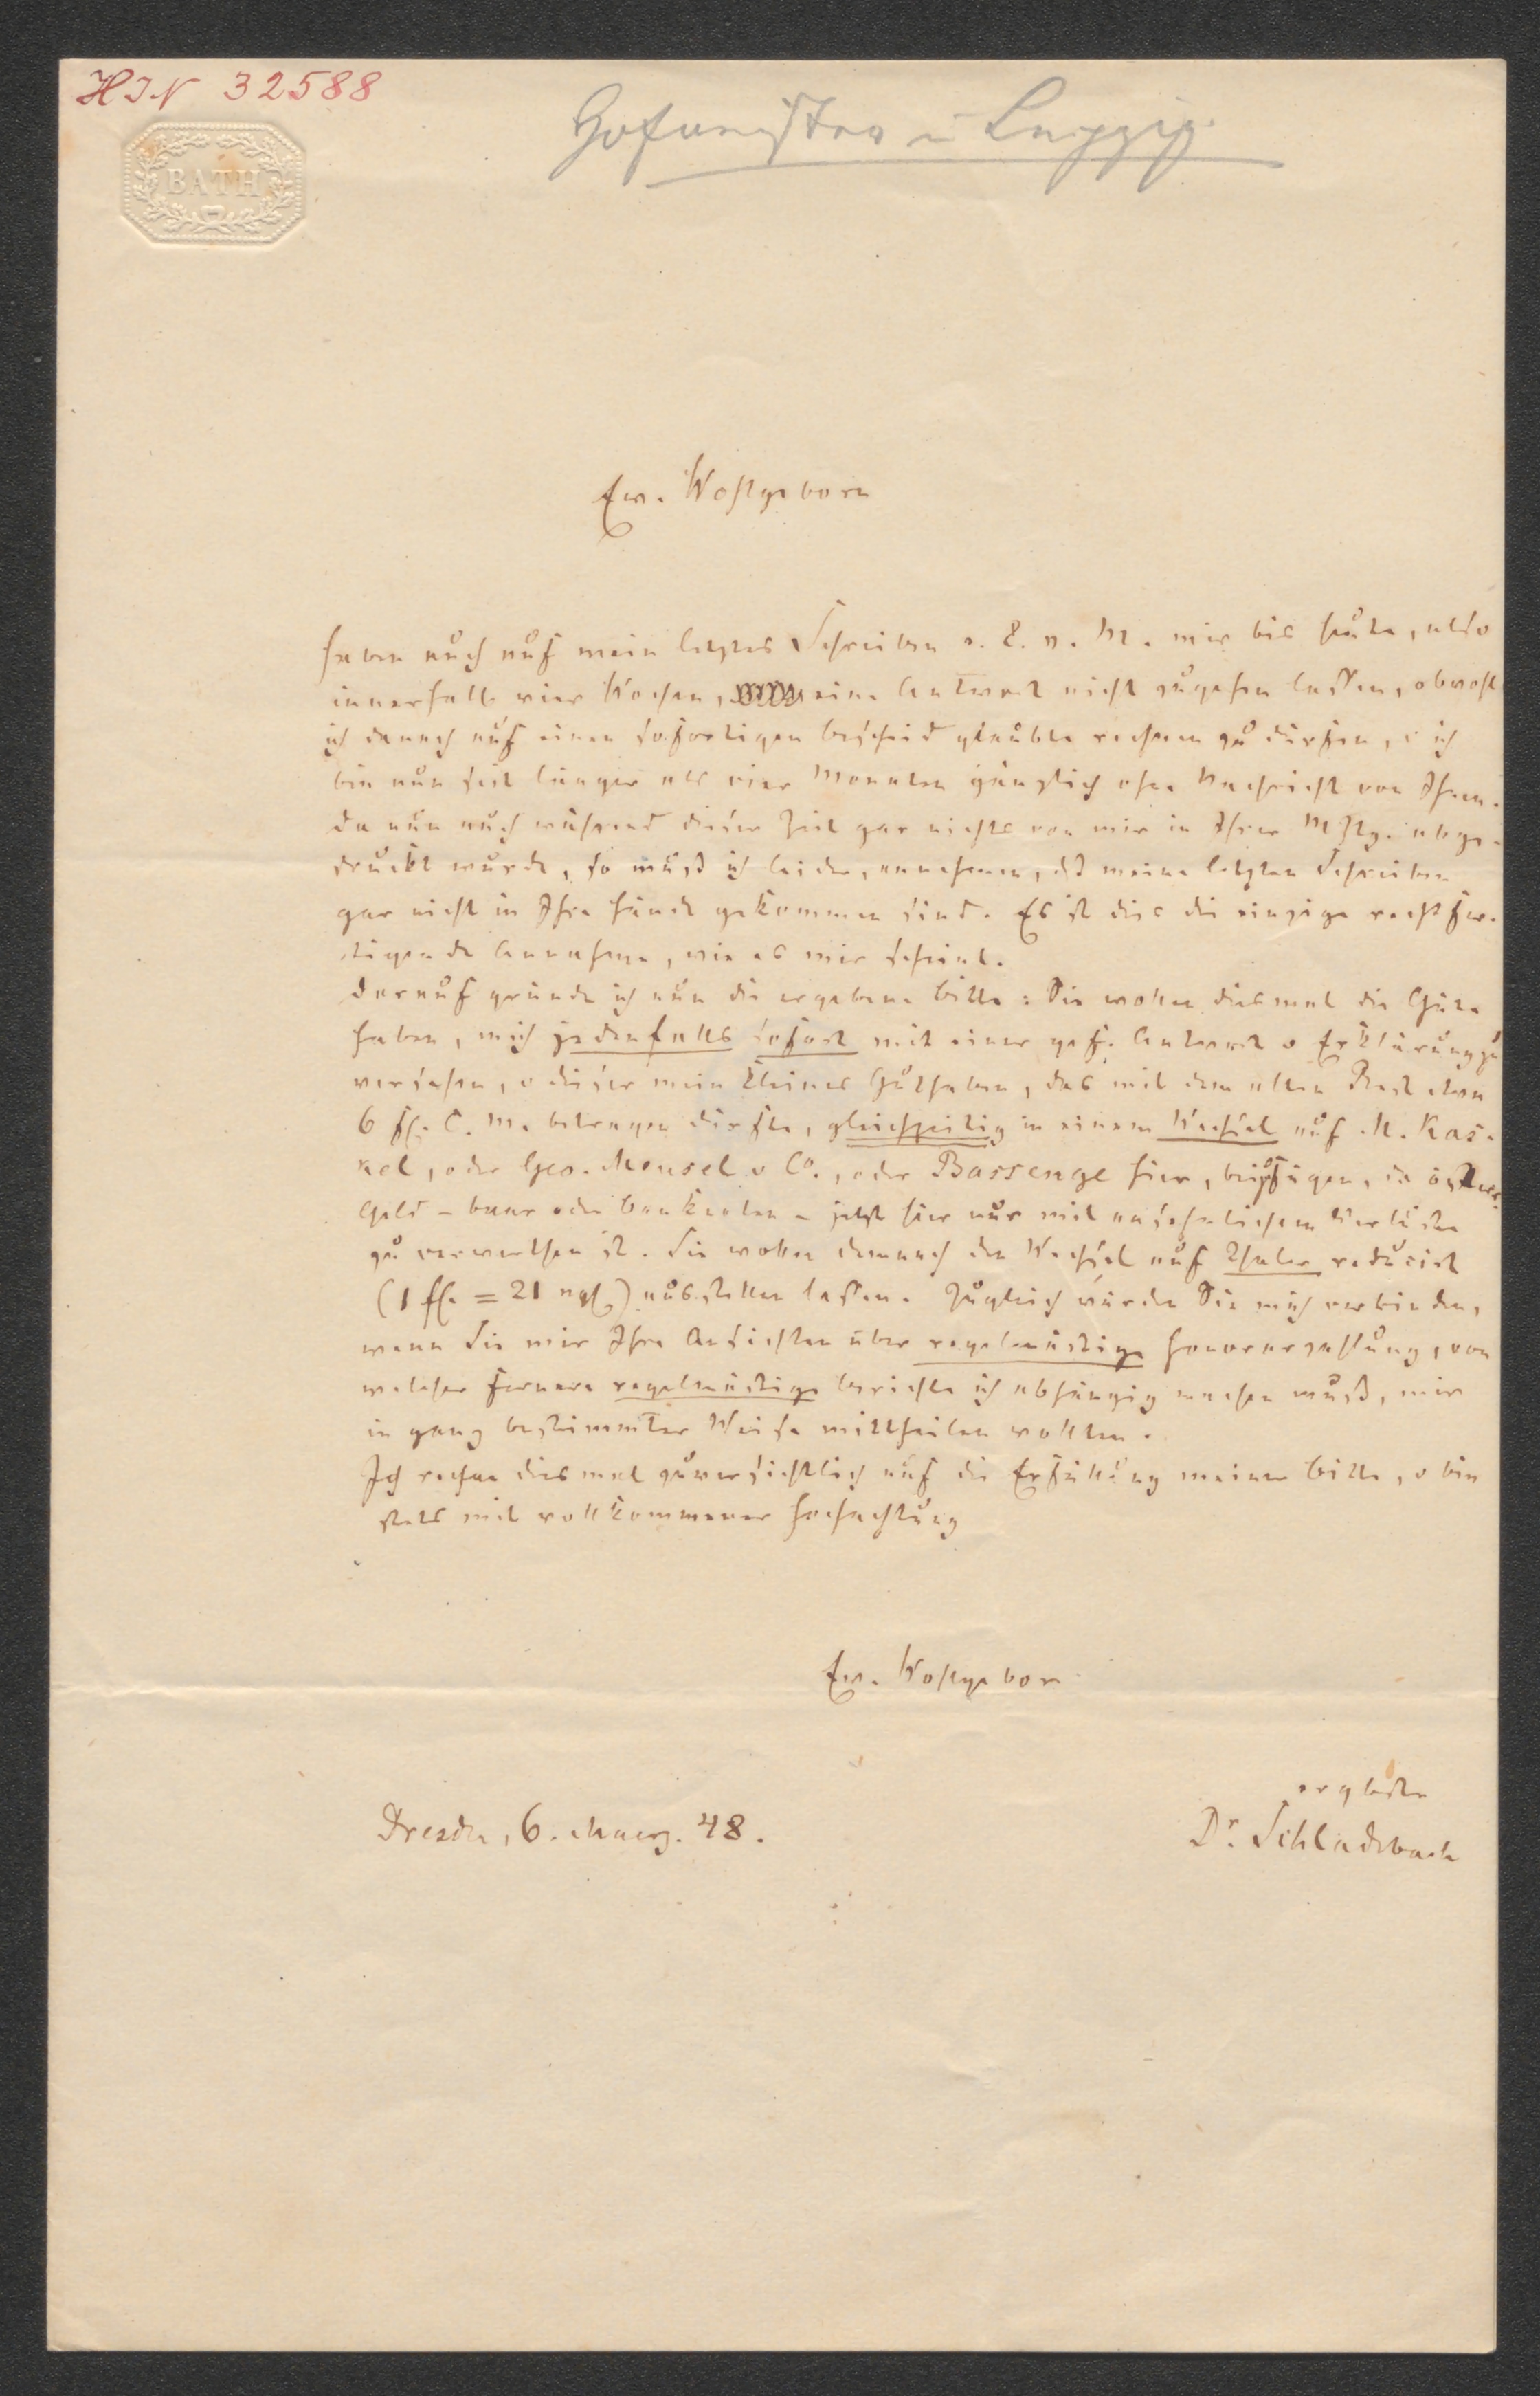 HIN 32588
BATH
Hofmeister i Leipzig
Ew. Wohlgeborn
haben auch auf mein letztes Schreiben v. 8. v. M. mir bis heute, also
innerhalb vier Wochen, eine Antwort nicht zugehen lassen, obwohl
ich danach auf einen sofortigen Bescheid glaubte rechnen zu dürfen, u ich
bin nun seit länger als vier Monaten gänzlich ohne Nachricht von Ihnen.
Da nun auch während dieser Zeit gar nichts von mir in Ihrer MZtg. abge-
druckt wurde, so muß ich leider, annehmen, daß meine letzten Schreiben
gar nicht in Ihre Hände gekommen sind. Es ist dies die einzige rechtfer-
tigende Annahme, wie es mir scheint.
Darauf gründe ich nun die ergebene Bitte: Sie wollen diesmal die Güte
haben, mich jedenfalls sofort mit einer gef. Antwort u Erklärung zu
versehen, u dieser mein kleines Guthaben, das mit dem alten Rest etwa
6 fl. C. M. betragen dürfte, gleichzeitig in einem Wechsel auf M. Kas-
kel, oder Geo. Meusel u Co., oder Bassenge hier, beizufügen, da östrer.
Geld – baar oder Banknoten – jetzt hier nur mit ansehnlichem Verluste
zu verwerthen ist. Sie wollen demnach den Wechsel auf Thaler reducirt
(1 fl. = 21 ngl) ausstellen lassen. Zugleich würden Sie mich verbinden,
wenn Sie mir Ihre Ansichten über regelmäßige Honorarzahlung, von
welcher fernere regelmäßige Berichte ich abhängig machen muß, mir
in ganz bestimmter Weise mittheilen wollten.
Ich rechne diesmal zuversichtlich auf die Erfüllung meiner Bitte, u bin
stets mit vollkommener Hochachtung
Ew. Wohlgebor
ergbster
Dresden, 6. Maerz. 48.
Dr. Schladebach